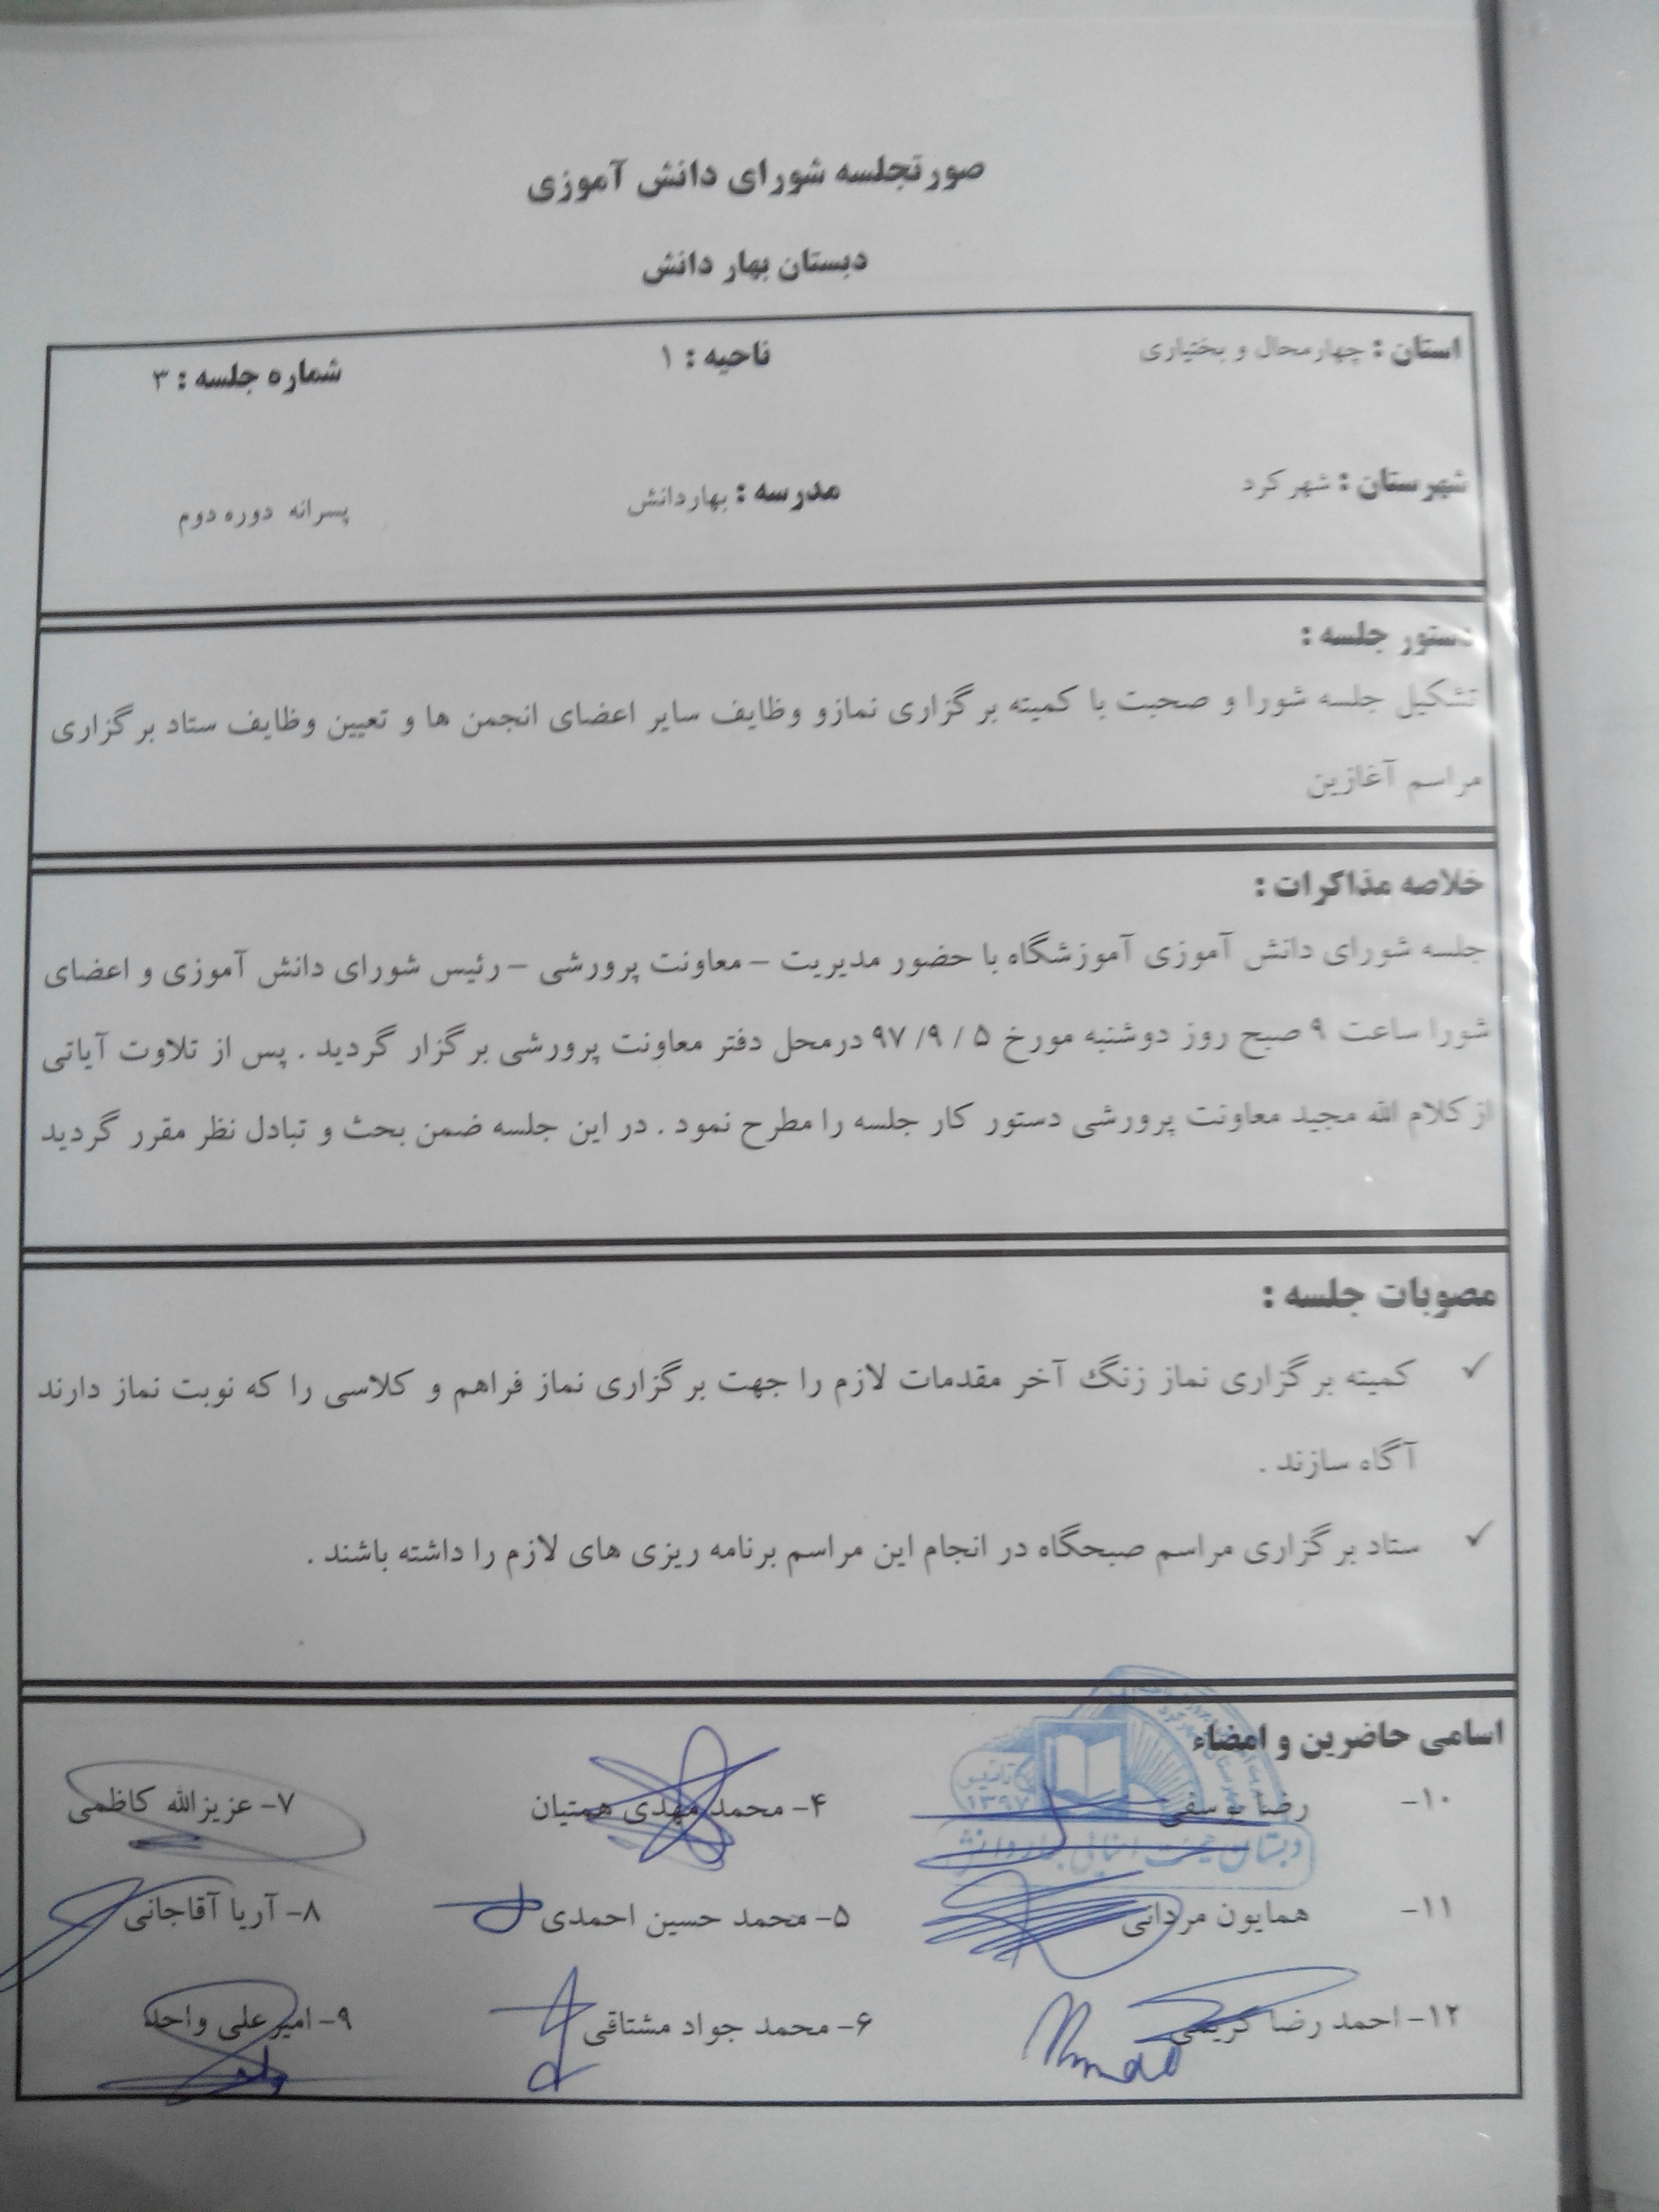 صورتجلسه شورای دانش آموزی
دبستان بهار دانش
استان : چهارمحال و بختیاری ناحیه : ۱ شماره جلسه : ۳
شهرستان : شهرکرد مدرسه : بهاردانش پسرانه دوره دوم
دستور جلسه :
تشکیل جلسه شورا و صحبت با کمیته برگزاری نمازو وظایف سایر اعضای انجمن ها و تعیین وظایف ستاد برگزاری
مراسم آغازین
خلاصه مذاکرات :
جلسه شورای دانش آموزی آموزشگاه با حضور مدیریت – معاونت پرورشی – رئیس شورای دانش آموزی و اعضای
شورا ساعت ۹ صبح روز دوشنبه مورخ ۵ / ۹/ ۹۷ درمحل دفتر معاونت پرورشی برگزار گردید . پس از تلاوت آیاتی
از کلام الله مجید معاونت پرورشی دستور کار جلسه را مطرح نمود . در این جلسه ضمن بحث و تبادل نظر مقرر گردید
مصوبات جلسه :
✓ کمیته برگزاری نماز زنگ آخر مقدمات لازم را جهت برگزاری نماز فراهم و کلاسی را که نوبت نماز دارند
آگاه سازند .
✓ ستاد برگزاری مراسم صبحگاه در انجام این مراسم برنامه ریزی های لازم را داشته باشند .
اسامی حاضرین و امضاء
۱۰- رضا یوسفی ۴- محمد مهدی همتیان ۷- عزیزالله کاظمی
تاسیس
۱۳۹۷
دبستان غیرانتفاعی بهار دانش
۱۱- همایون مردانی ۵- محمد حسین احمدی ۸- آریا آقاجانی
۱۲- احمد رضا کریمی ۶- محمد جواد مشتاقی ۹- امیرعلی واحد